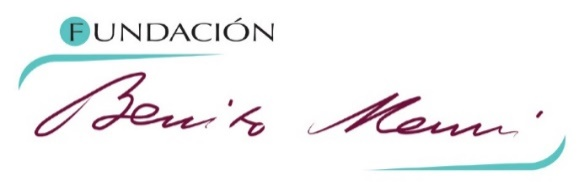 FUNDACIÓN
Benito Menni